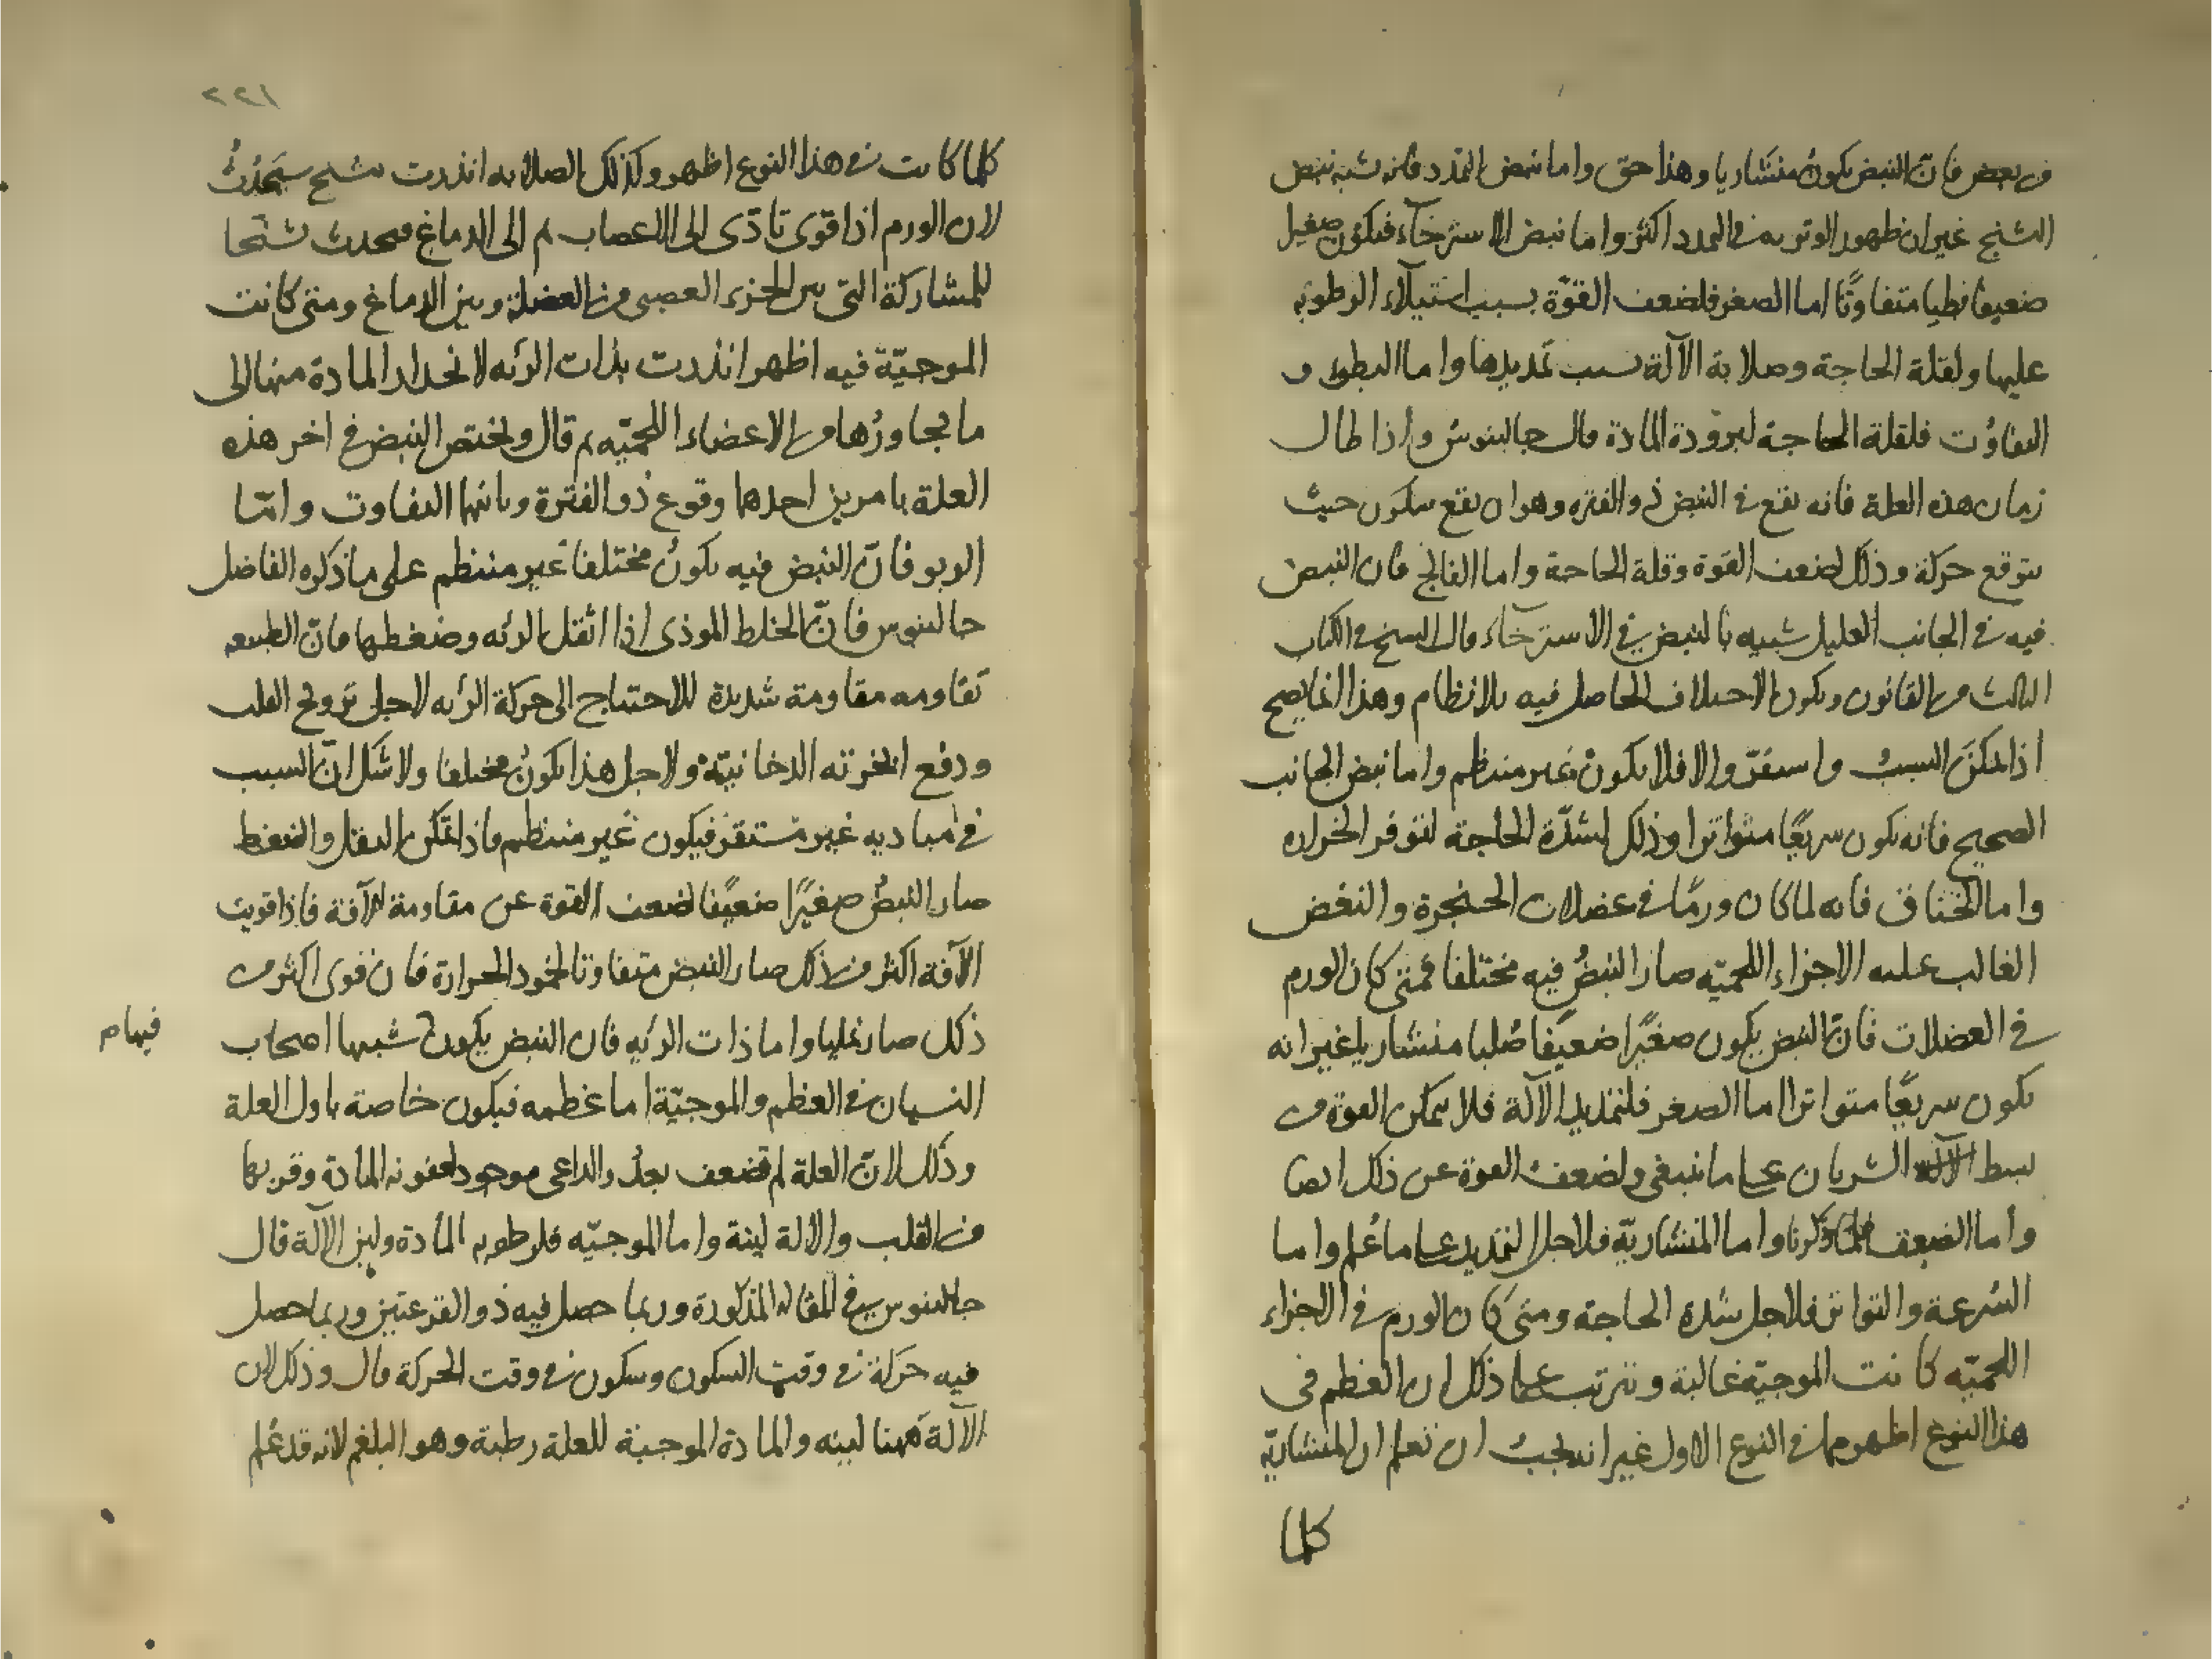 من بعض فان النبض يكون منشاريا وهذا حق واما نبض التمدد فانه شبه نبض
التشنج غير ان ظهور الوتريه في التمدد اكثر واما نبض الاسترخآء فيكون صغيرا
ضعيفا بطيا متفاوتا اما الصغر فلضعف القوّة بسبب استيلاء الرطوبه
عليها ولقلة الحاجة وصلابة الآلة بسبب تمديدها واما البطوء و
التفاوُت فلقلة الحاجة لبرودة المادة قال جالينوس واذا طال
زمان هذه العلة فانه يقع في النبض ذو الفتره وهو ان يقع سكون حيث
يتوقع حركة وذلك لضعف القوة وقلة الحاجة واما الفالج فان النبض
فيه في الجانب العليل شبيه بالنبض في الاسترخاء قال الشيخ في الكتاب
الثالث من القانون ويكون الاختلاف الحاصل فيه بلا نظام وهذا انما يصح
اذا تمكن السبب واستقرّ والا فلا يكون غير منتظم واما نبض الجانب
الصحيح فانه يكون سريعًا متواترا وذلك لشدّة الحاجة لتوفر الحراره
واما الخناق فانه لما كان ورمًا في عضلات الحنجرة والنغض
الغالب عليه الاجزاء اللحميّه صار النبضُ فيه مختلفا فمتى كان الورم
في العضلات فان النبض يكون صغيرًا ضعيفًا صُلبا منشاريا غير انه
يكون سريعًا متواترا اما الصغر فلتمديد الآلة فلا تتمكن القوة من
بسط الشريان على ما ينبغي ولضعف القوة عن ذلك ايضا
واما الضعف فلما ذكرنا واما المنشاريّة فلاجل التمديد على ما عُلم واما
السُرعة والتواتر فلاجل شدة الحاجة ومتى كان الورم في الاجزاء
اللحميّه كانت الموجيّة غالبة ويترتب على ذلك ان العظم في
هذا النوع اظهر مما في النوع الاول غير انه يجب ان تعلم ان المنشاريّة
كلما
١٢٢
كلما كانت في هذا النوع اظهر وكذلك الصلابه انذرت بتشنج سيَحدُثُ
لان الورم اذا قوى تادّى الى الاعصاب ثم الى الدماغ فيحدث تشنجا
للمشاركة التي بين الجزء العصبي من العضلة وبين الدماغ ومتى كانت
الموجيّة فيه اظهر انذرت بذات الرئه لانحدار المادة منها الى
ما يجاورُها من الاعضاء اللحميّه ثم قال ويختص النبض في اخر هذه
العلة بامرين احدهما وقوع ذو الفترة وثانيها التفاوت وامّا
الربو فان النبض فيه يكون مختلفا غير منتظم على ما ذكره الفاضل
جالينوس فانّ الخلط الموذى اذا اثقل الرئه وضغطها فانّ الطبيعه
تقاومه مقاومة شديدة للاحتياج الى حركة الرئه لاجل ترويح القلب
ودفع ابخرته الدخانيّة ولاجل هذا يكون مختلفا ولا شك ان السبب
في مباديه غير مستقر فيكون غير منتظم فاذا تمكن الثقل والضغط
صار النبضُ صغيرًا ضعيفا لضعف القوة عن مقاومة الآفة فاذا قويت
الآفة اكثر من ذلك صار النبض متفاوتا لخمود الحرارة فان قوى اكثر من
ذلك صار نمليا واما ذات الرئه فان النبض يكون شبيها اصحاب
فيها م
النسيان في العظم والموجيّة اما عظمه فيكون خاصة باول العلة
وذلك لانّ العلة لم تضعف بعدُ والداعى موجود لعفونه المادة وقربها
من القلب والالة لينة واما الموجيّه فلرطوبه المادة ولين الالة قال
جالينوس في المقاله المذكورة وربما حصل فيه ذو القرعتين وربما حصل
فيه حركة في وقت السكون وسكون في وقت الحركة قال وذلك لان
الآلة ههنا لينه والمادة الموجبة للعلة رطبة وهو البلغم لانه قد عُلم